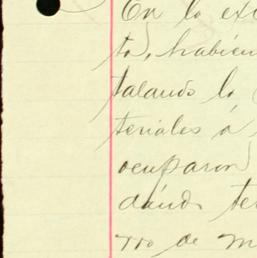 En lo exi
to, habien
talando lo
teriales á
ocuparon
dando te
rro de m